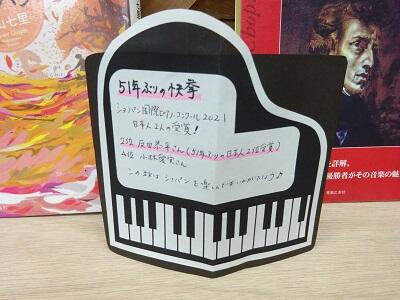 山七里
51年ぶりの快挙
ショパン国際ピアノコンクール2021
日本人2人の受賞!
2位 反田恭平さん(51年ぶりの日本人2位受賞)
4位 小林愛実さん
この秋は ショパンを楽しんではいかがでしょう♪
を詳解。
優勝者がその音楽の魅